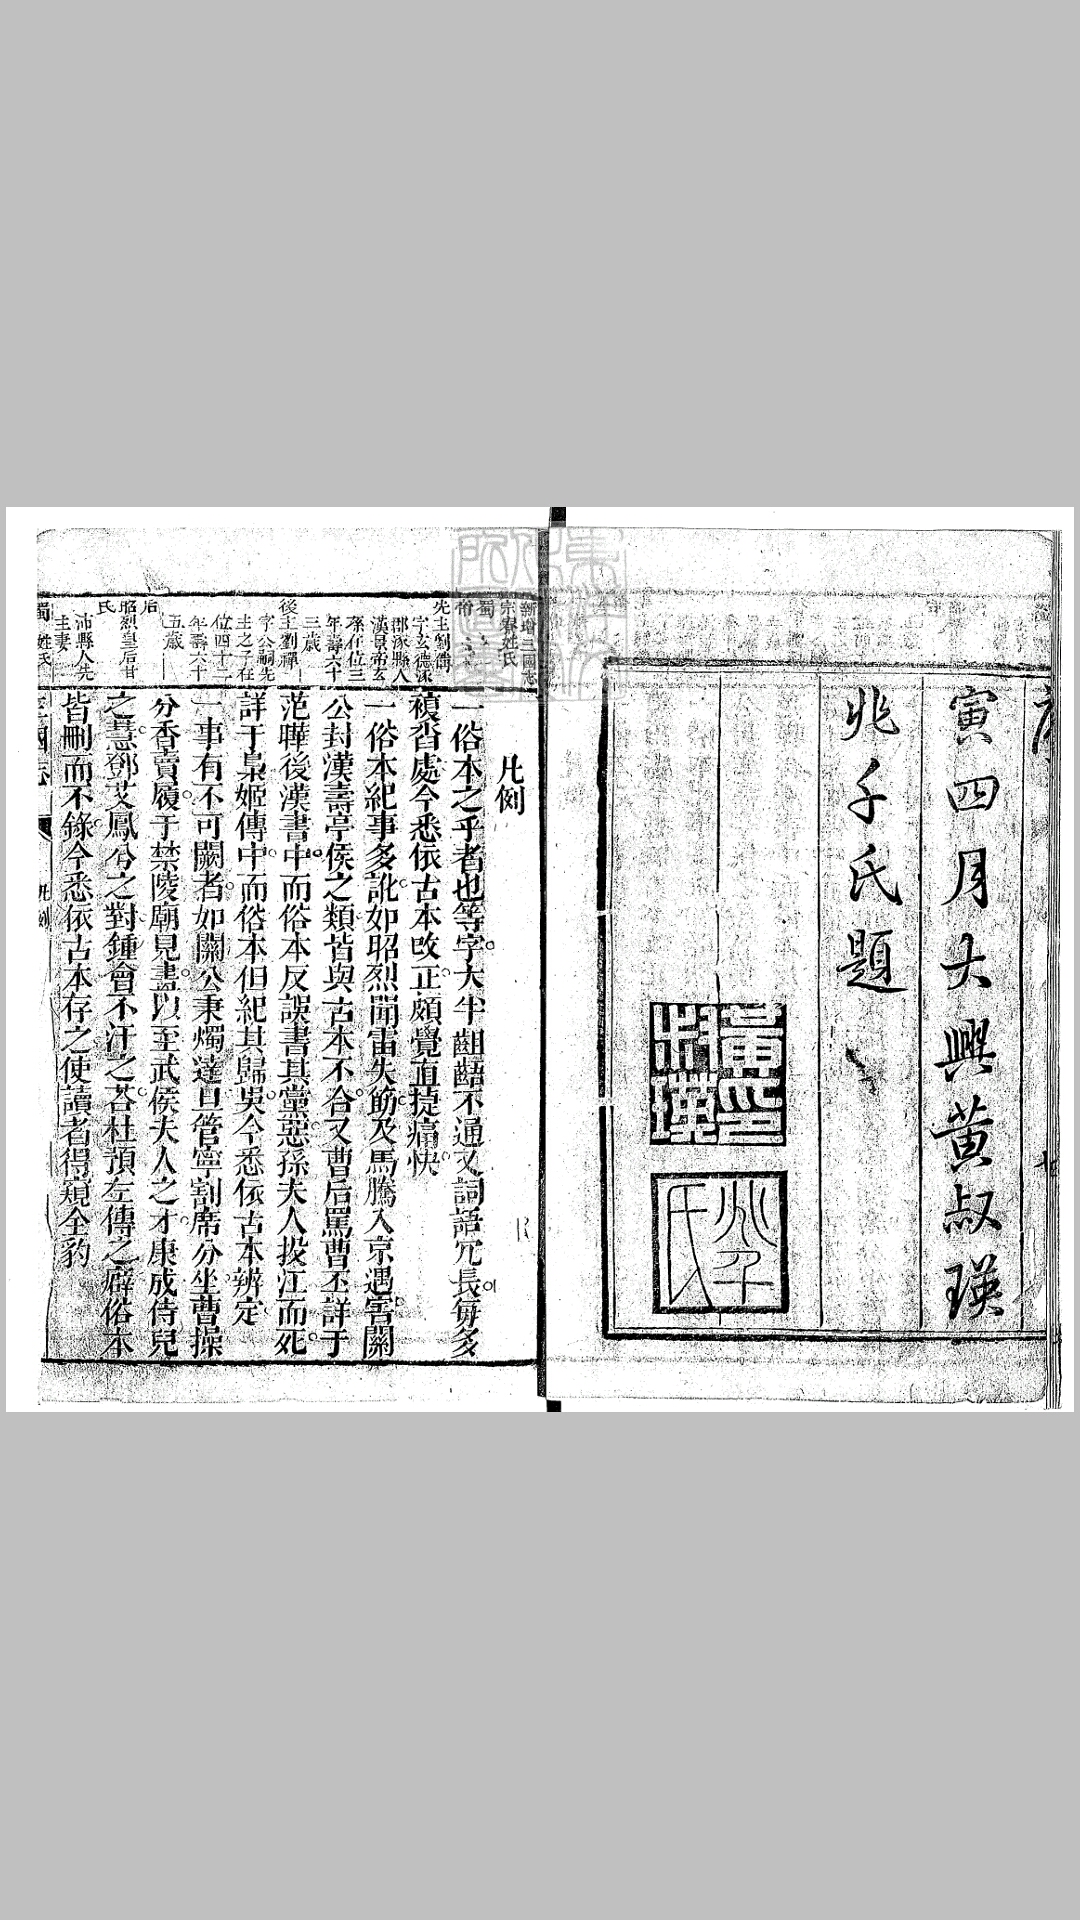 寅四月大興黃叔瑛
兆子氏題
黃叔瑛印
兆子氏
凡例
一俗本之乎者也等字大半齟齬不通又詞語冗長每多
複沓處今悉依古本改正頗覺直捷痛快
一俗本紀事多訛如昭烈聞雷失筯及馬騰入京遇害關
公封漢壽亭侯之類皆與古本不合又曹后罵曹丕詳于
范曄後漢書中而俗本反誤書其黨惡孫夫人投江而死
詳于梟姬傳中而俗本但紀其歸吳今悉依古本辨定
一事有不可闕者如關公秉燭達旦管寧割席分坐曹操
分香賣履于禁陵廟見畫以至武侯夫人之才康成侍兒
之慧鄧艾鳳兮之對鍾會不汗之答杜預左傳之癖俗本
皆刪而不錄今悉依古本存之使讀者得窺全豹
新增三國志
宗寮姓氏
蜀
帝
先主劉備
字玄德涿
郡涿縣人
漢景帝玄
孫在位三
年壽六十
三歲
後主劉禪
字公嗣先
主之子在
位四十一
年壽六十
五歲
后
昭烈皇后甘
氏
沛縣人先
主妻
蜀 姓氏
三國志
凡例